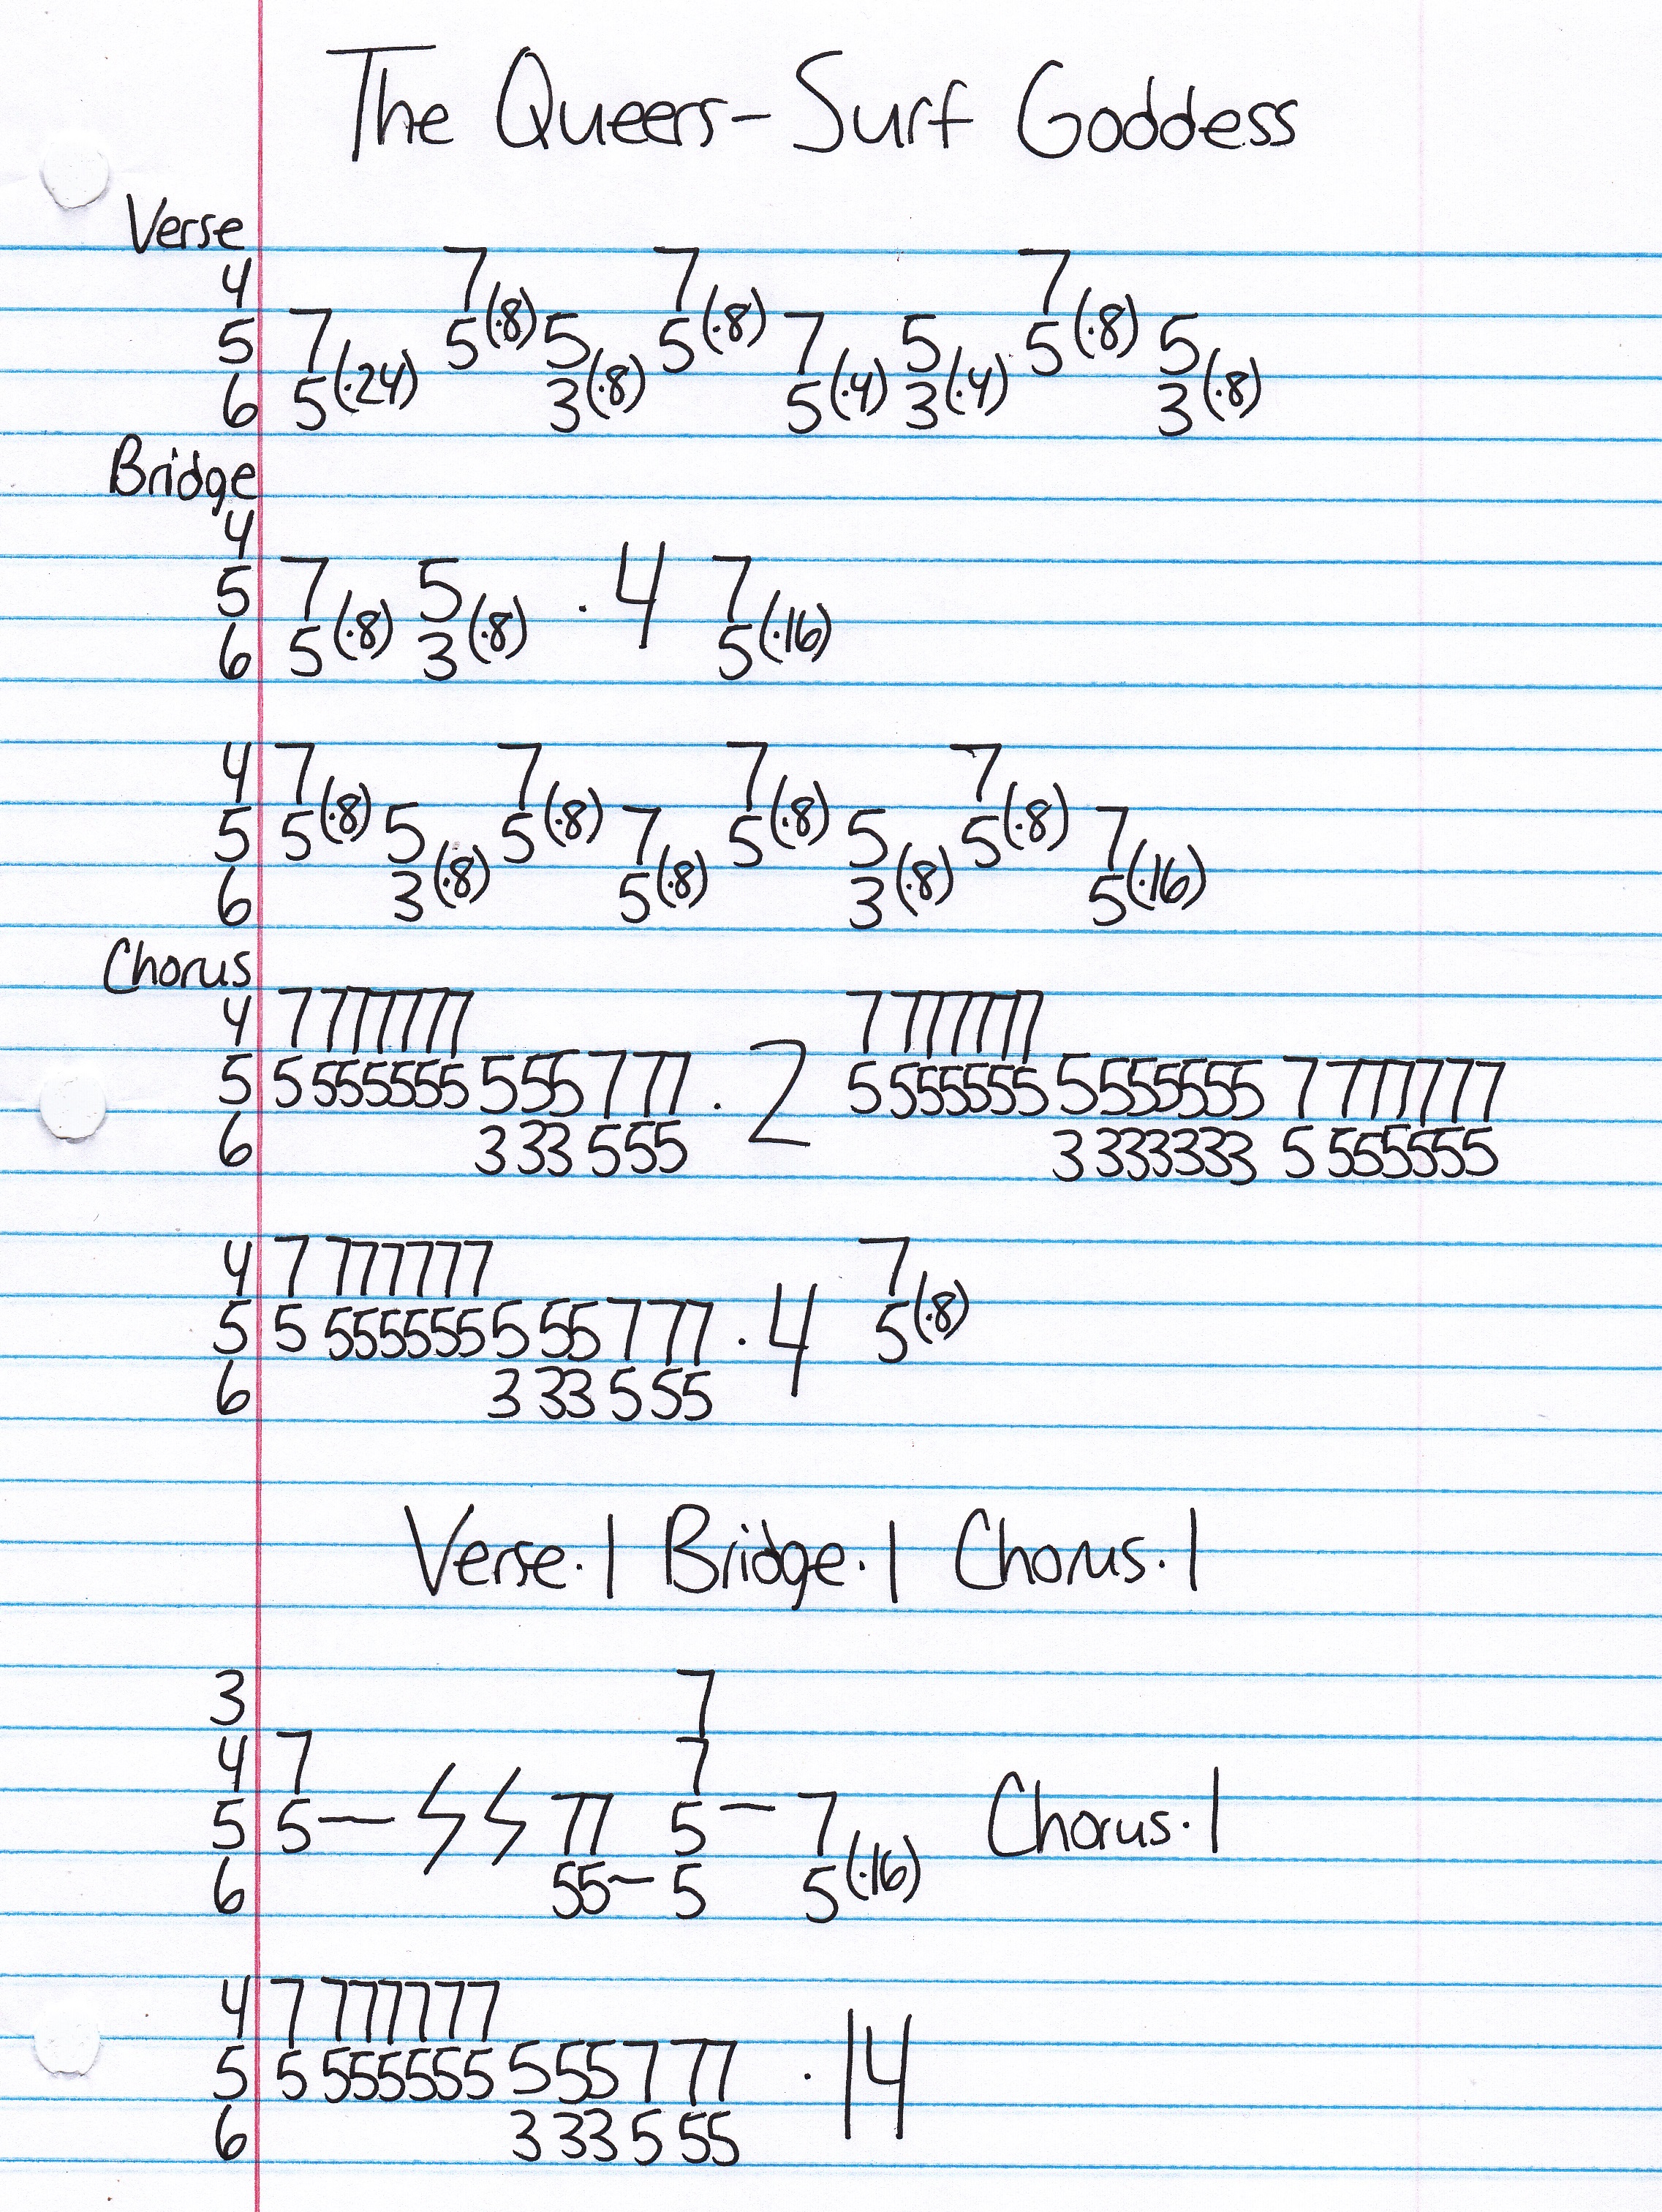 The Queers- Surf Goddess
Verse
4 7 7 7
5 7 5(·8) 5 5(·8) 7 5 5(·8) 5
6 5(·24) 3(·8) 5(·4) 3(·4) 3(·8)
Bridge
4
5 7 5 · 4 7
6 5(·8) 3(·8) 5(·16)
4 7 7 7 7
5 5(·8) 5 5(·8) 7 5(·8) 5 5(·8) 7
6 3(·8) 5(·8) 3(·8) 5(·16)
Chorus
4 7 777777 7 777777
5 5 555555 555 777 · 2 5 555555 5555555 7 777777
6 333 555 3 333333 5 555555
4 7 777777 7
5 5 555555 5 55 777 · 4 5(·8)
6 3 33 555
Verse·1 Bridge·1 Chorus·1
3 7
4 7 7
5 5— 77 5 — 7 Chorus·1
6 55— 5 5(·16)
4 7 777777
5 5 555555 555 777 · 14
6 3 33 5 55